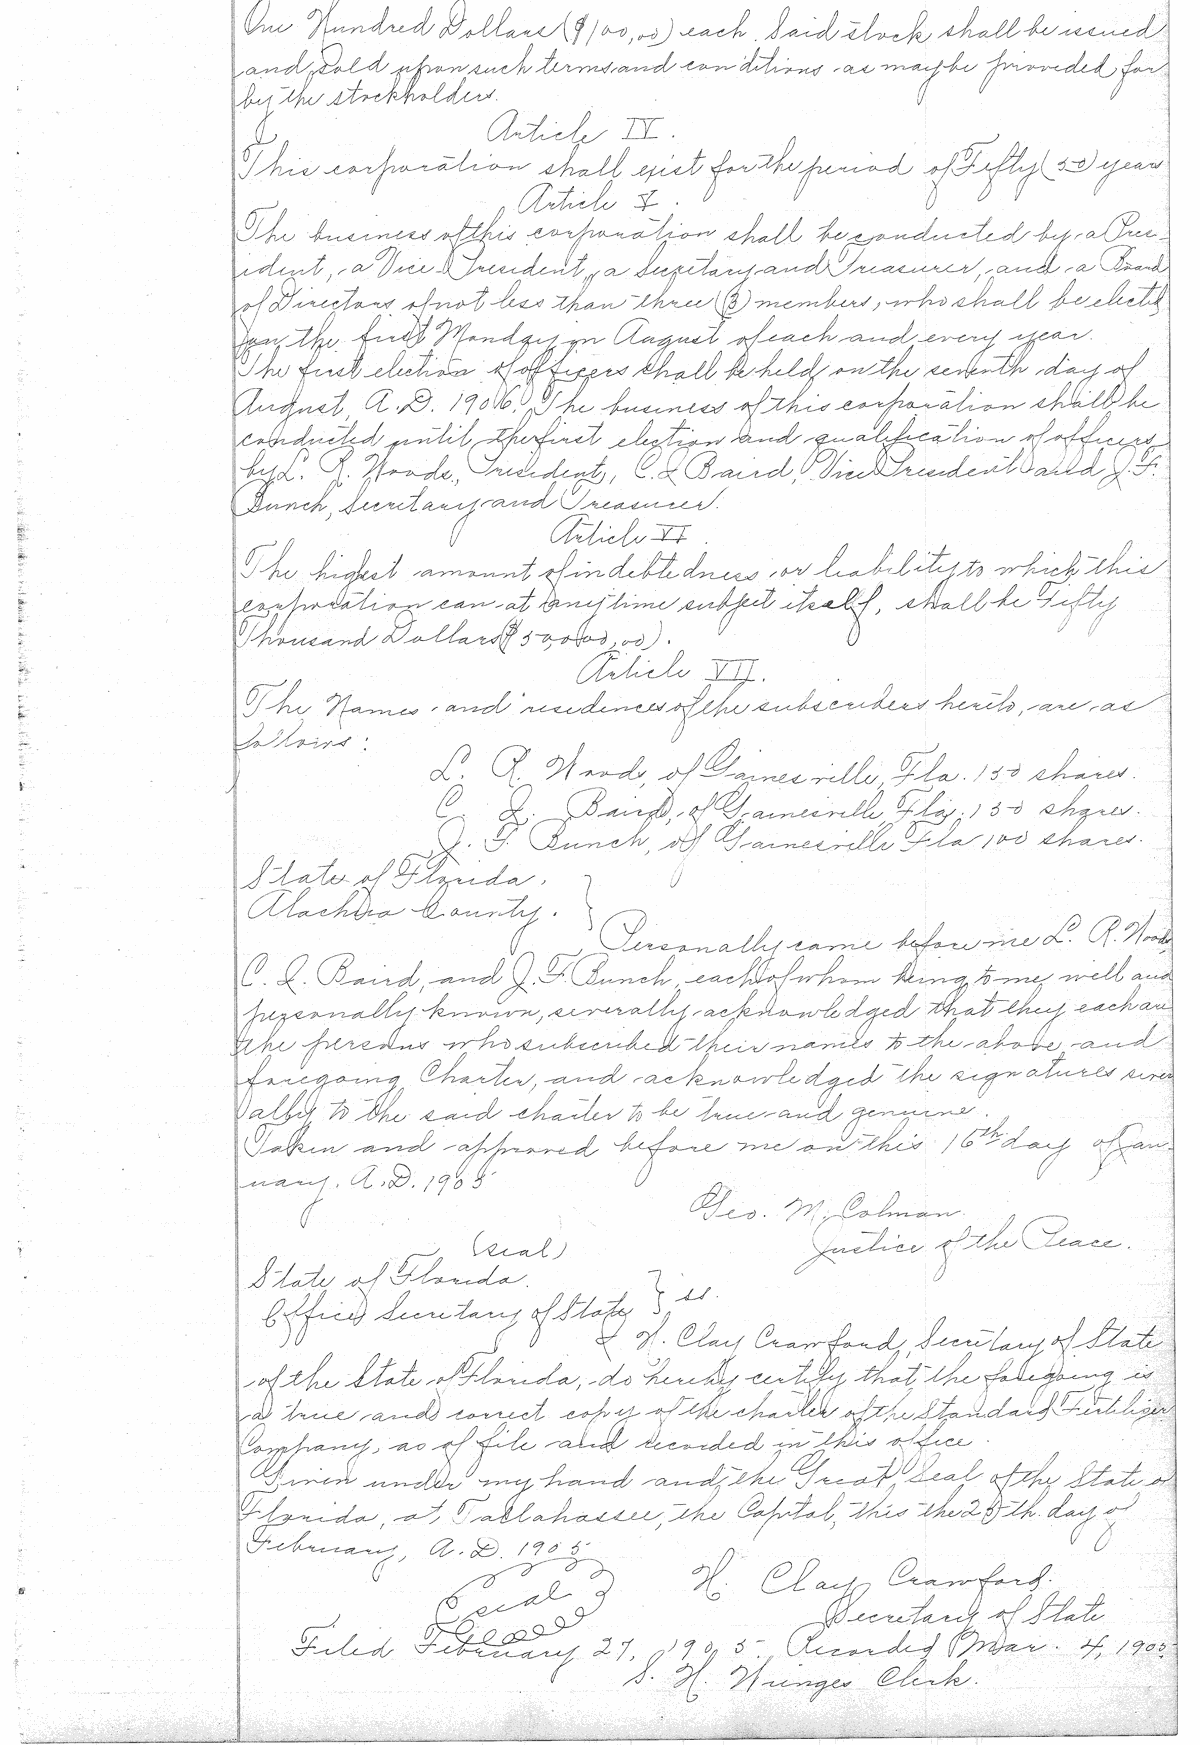 One Hundred Dollars ($100,00) each. Said stock shall be issued
and sold upon such terms and conditions as may be provided for
by the stockholders.
Article IV.
This corporation shall exist for the period of Fifty (50) years
Article V.
The business of this corporation shall be conducted by a Pres-
ident, a Vice President, a Secretary and Treasurer, and a Board
of Directors of not less than three (3) members, who shall be elected
on the first Monday in August of each and every year.
The first election of officers shall be held on the seventh day of
August, A.D. 1906. The business of this corporation shall be
conducted until the first election and qualification of officers
by L. R. Woods, President, C. I. Baird, Vice President and J. F.
Bunch, Secretary and Treasurer.
Article VI.
The highest amount of indebtedness or liability to which this
corporation can at any time subject itself, shall be Fifty
Thousand Dollars ($50,000,00).
Article VII.
The Names and residences of the subscribers hereto, are as
follows:
L. R. Woods, of Gainesville, Fla. 150 shares.
C. I. Baird, of Gainesville, Fla. 150 shares.
J. F. Bunch, of Gainesville Fla 100 shares.
State of Florida.
Alachua County. }
Personally came before me L. R. Woods,
C. I. Baird, and J. F. Bunch, each of whom being to me well and
personally known, severally acknowledged that they each are
the persons who subscribed their names to the above and
foregoing Charter, and acknowledged the signatures sever
ally to the said charter to be true and genuine.
Taken and approved before me on this 16th day of Jan-
uary, A.D. 1905
Geo. M. Colman
Justice of the Peace.
(seal)
State of Florida.
Office Secretary of State } ss.
I H. Clay Crawford, Secretary of State
of the State of Florida, do hereby certify that the foregoing is
a true and correct copy of the charter of the Standard Fertilizer
Company, as of file and recorded in this office.
Given under my hand and the Great Seal of the State of
Florida, at Tallahassee, the Capital, this the 25th. day of
February, A.D. 1905
seal
H. Clay Crawford.
Secretary of State
Filed February 27, 1905. Recorded Mar. 4, 1905
S. H. Wienges Clerk.